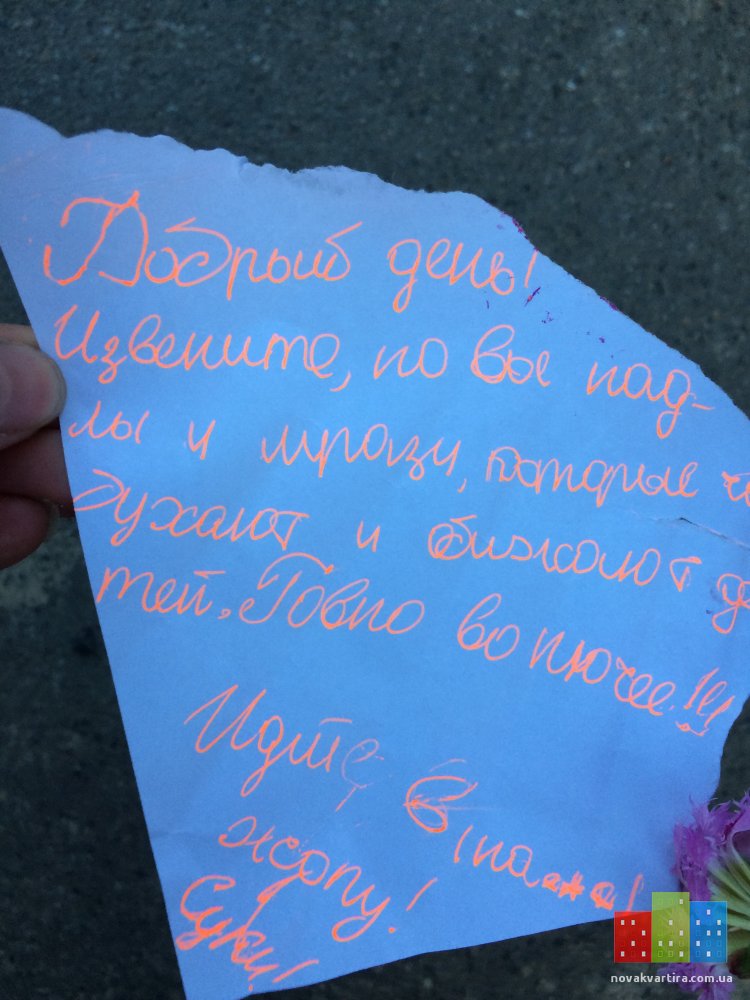 Добрый день!
Извените, но вы пад-
лы и мрази, которые
духают и обижают
тей. Говно вонючее!!!
Идите в
жопу!
Суки!
novakvartira.com.ua